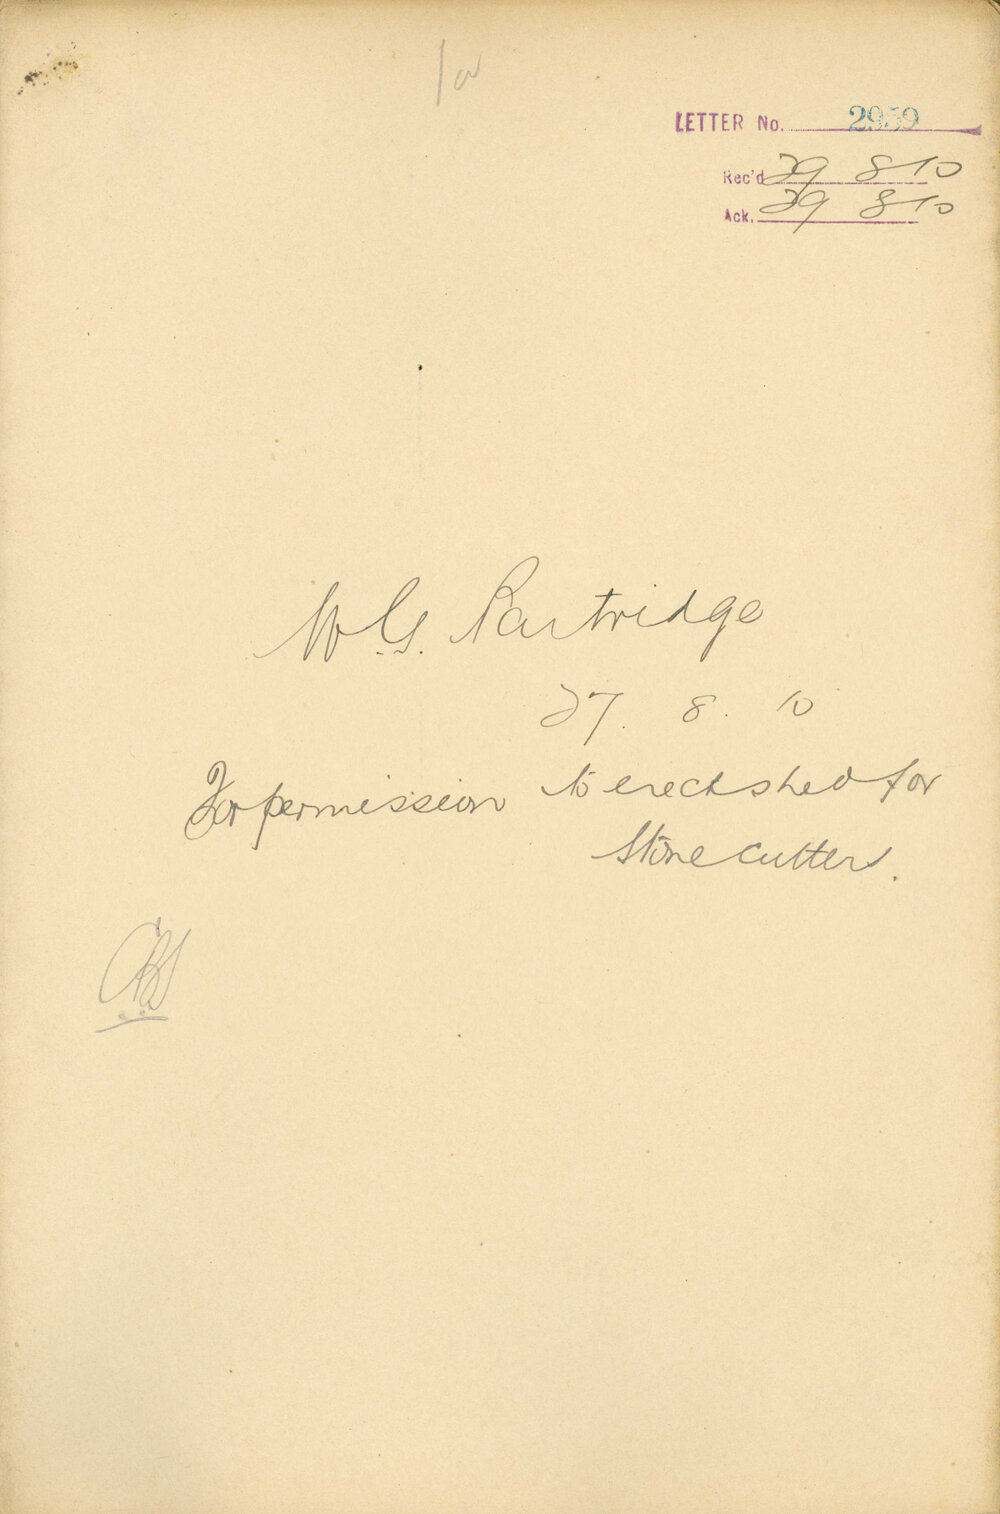 LETTER No. 2959
Rec'd 29 8 10
Ack. 29 8 10
W G. Partridge
27. 8. 10
For permission to erect shed for
Stone cutters.